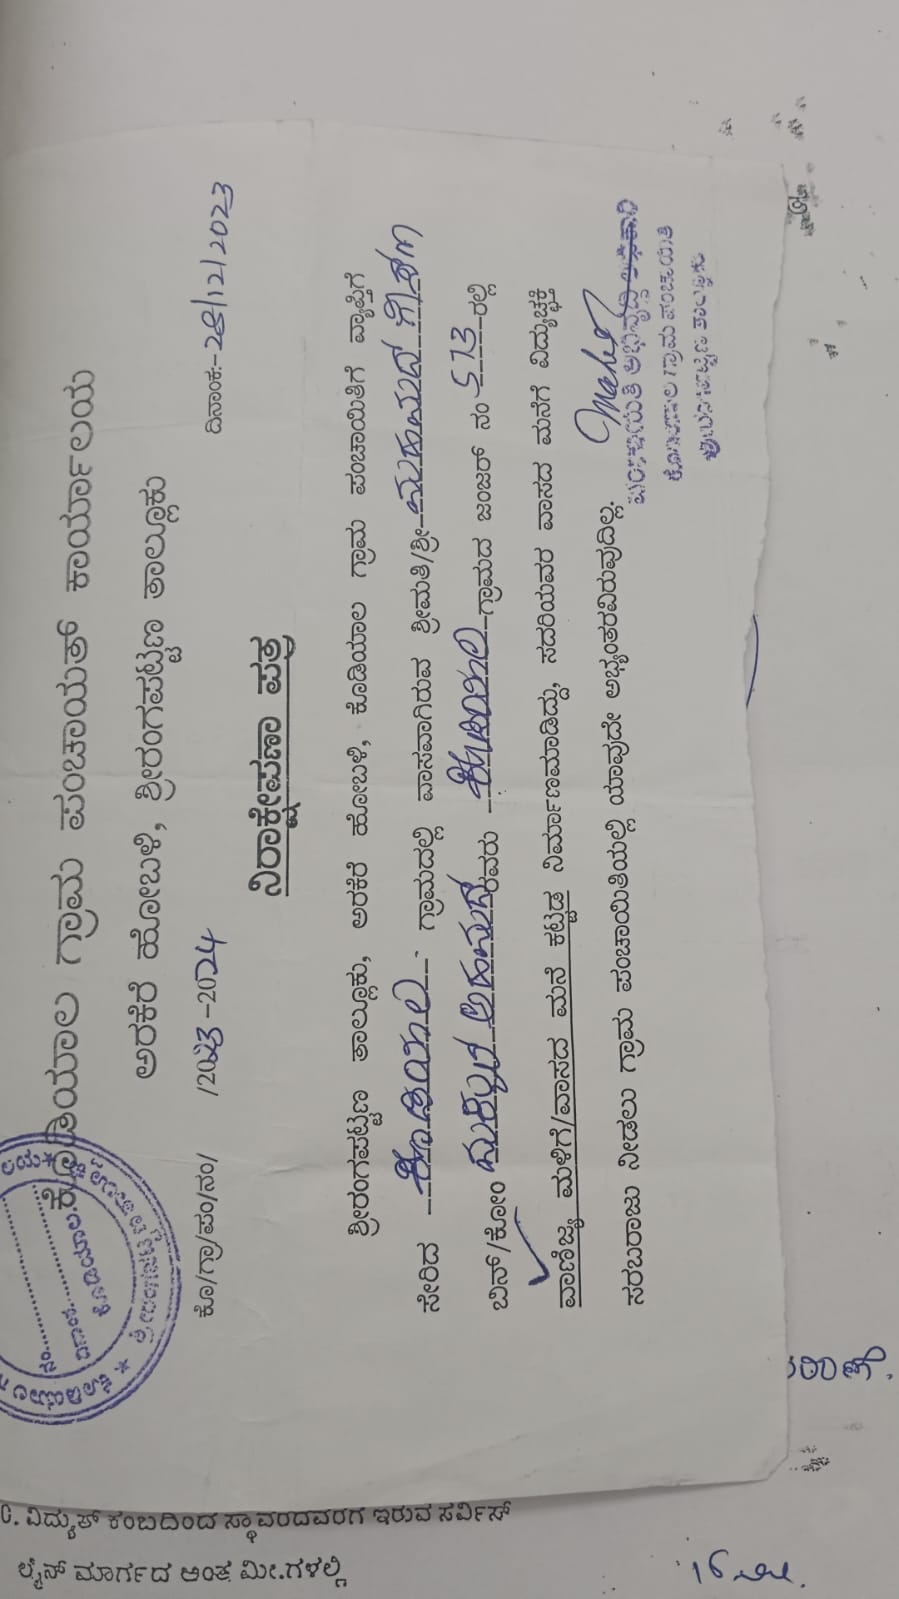 ಕೊಡಿಯಾಲ ಗ್ರಾಮ ಪಂಚಾಯತ್ ಕಾರ್ಯಾಲಯ
ಅರಕೆರೆ ಹೋಬಳಿ, ಶ್ರೀರಂಗಪಟ್ಟಣ ತಾಲ್ಲೂಕು
ಕೊ/ಗ್ರಾ/ಪಂ/ನಂ/ /2023-2024 ದಿನಾಂಕ:-28/12/2023
ನಿರಾಕ್ಷೇಪಣಾ ಪತ್ರ
ಶ್ರೀರಂಗಪಟ್ಟಣ ತಾಲ್ಲೂಕು, ಅರಕೆರೆ ಹೋಬಳಿ, ಕೊಡಿಯಾಲ ಗ್ರಾಮ ಪಂಚಾಯಿತಿಗೆ ವ್ಯಾಪ್ತಿಗೆ
ಸೇರಿದ ಕೊಡಿಯಾಲ ಗ್ರಾಮದಲ್ಲಿ ವಾಸವಾಗಿರುವ ಶ್ರೀಮತಿ/ಶ್ರೀ
ಬಿನ್/ಕೋಂ ರವರು ಕೊಡಿಯಾಲ ಗ್ರಾಮದ ಜಂಜರ್ ನಂ 513 ರಲ್ಲಿ
ವಾಣಿಜ್ಯ ಮಳಿಗೆ/ವಾಸದ ಮನೆ ಕಟ್ಟಡ ನಿರ್ಮಾಣಮಾಡಿದ್ದು, ಸದರಿಯವರ ವಾಸದ ಮನೆಗೆ ವಿದ್ಯುಚ್ಛಕ್ತಿ
ಸರಬರಾಜು ನೀಡಲು ಗ್ರಾಮ ಪಂಚಾಯಿತಿಯಲ್ಲಿ ಯಾವುದೇ ಅಭ್ಯಂತರವಿರುವುದಿಲ್ಲ.
ಪಂಚಾಯಿತಿ ಅಭಿವೃದ್ಧಿ ಅಧಿಕಾರಿ
ಕೊಡಿಯಾಲ ಗ್ರಾಮ ಪಂಚಾಯಿತಿ
ಶ್ರೀರಂಗಪಟ್ಟಣ ತಾಲ್ಲೂಕು
ನಂ.
ದಿನಾಂಕ
ಕೊಡಿಯಾಲ
0. ವಿದ್ಯುತ್ ಕಂಬದಿಂದ ಸ್ಥಾವರದವರಗ ಇರುವ ಸರ್ವಿಸ್
ಲೈನ್ ಮಾರ್ಗದ ಅಂತ ಮೀ.ಗಳಲ್ಲಿ 16 ಮೀ.